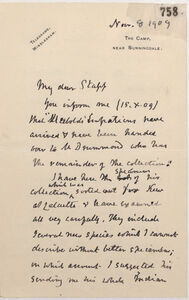 758.
Nov. 8 1909
TELEGRAMS,
WINDLESHAM.
THE CAMP,
NEAR SUNNINGDALE.
My dear Stapf
You inform me (15.X.09)
that
have
arrived & have been handed
over to Mr Drummond who has
the remainder of the collection.
I have here the
of his
specimens
which was
collection sorted out for Kew
at Calcutta & have examined
all very carefully. They include
several new species which I cannot
describe without better specimens;
on which account I suggested his
sending me his whole Indian